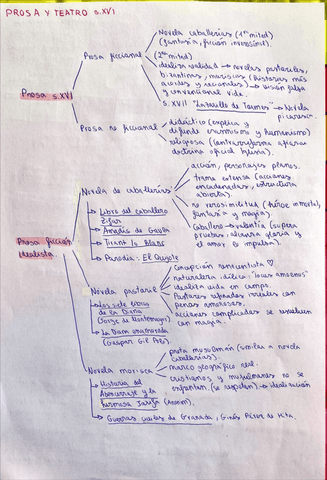 PROSA Y TEATRO s.XVI
Prosa s.XVI
Prosa ficcional
Novela caballerías (1ª mitad)
(fantasía, ficción inverosímil).
(2ª mitad)
idealiza realidad → novelas pastoriles,
bizantinas, moriscas (historias más
y racionales) → visión falsa
y convencional vida.
s. XVI "Lazarillo de Tormes" → Novela
picaresca.
Prosa no ficcional
didáctico (explica y
difunde erasmismo y humanismo)
religiosa (contrarreforma
doctrina oficial Iglesia).
Prosa ficción
idealista
Novela de caballerías
acción, personajes planos.
trama extensa (acciones
encadenadas, estructura
abierta).
no verosimilitud (héroe inmortal,
fantasía y magia).
caballero → valentía (supera
pruebas, alcanza gloria y
el amor lo impulsa).
Libro del caballero
Zifar
Amadís de Gaula
Tirant lo Blanc
Parodia: El Quijote
Novela pastoril
concepción renacentista
naturaleza idílica: "locus amoenus"
idealiza vida en campo.
Pastores refinados irreales con
penas amorosas.
acciones complicadas se resuelven
con magia.
Los siete libros
de la Diana
(Jorge de Montemayor)
La Diana enamorada
(Gaspar Gil Polo)
Novela morisca
poeta musulmán (similar a novela
caballerías).
marco geográfico real.
cristianos y musulmanes no se
enfrentan (se respetan) → idealización
Historia del
Abencerraje y la
hermosa Jarifa (Anónim).
Guerras civiles de Granada, Ginés Pérez de Hita.